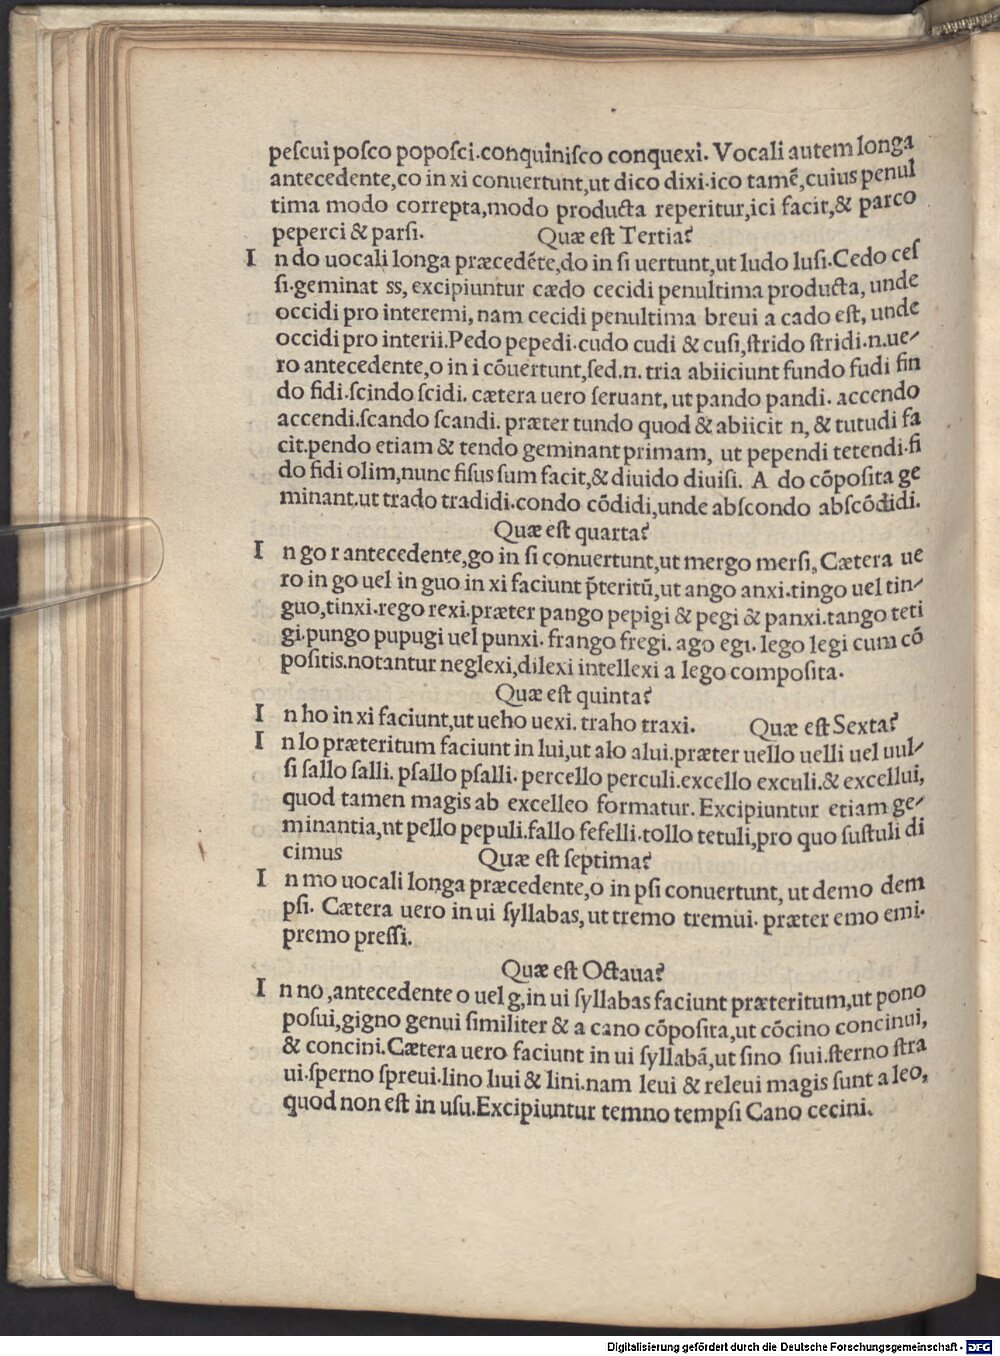 peſcui poſco popoſci.conquiniſco conquexi. Vocali autem longa
antecedente,co in xi conuertunt,ut dico dixi.ico tamē,cuius penul
tima modo correpta,modo producta reperitur,ici facit,& parco
peperci & parſi. Quæ eſt Tertia?
I n do uocali longa præcedēte,do in ſi uertunt,ut ludo luſi.Cedo ceſ
ſi.geminat ss, excipiuntur cædo cecidi penultima producta, unde
occidi pro interemi, nam cecidi penultima breui a cado eſt, unde
occidi pro interii.Pedo pepedi.cudo cudi & cuſi,ſtrido ſtridi.n.ue⸗
ro antecedente,o in i cōuertunt,ſed.n. tria abiiciunt fundo fudi fin
do fidi.ſcindo ſcidi. cætera uero ſeruant, ut pando pandi. accendo
accendi.ſcando ſcandi. præter tundo quod & abiicit n, & tutudi fa
cit.pendo etiam & tendo geminant primam, ut pependi tetendi.fi
do fidi olim,nunc fiſus ſum facit,& diuido diuiſi. A do cōpoſita ge
minant.ut trado tradidi.condo cōdidi,unde abſcondo abſcōdidi.
Quæ eſt quarta?
I n go r antecedente,go in ſi conuertunt,ut mergo merſi, Cætera ue
ro in go uel in guo in xi faciunt p̄teritū,ut ango anxi.tingo uel tin⸗
guo,tinxi.rego rexi.præter pango pepigi & pegi & panxi.tango teti
gi.pungo pupugi uel punxi. frango fregi. ago egi. lego legi cum cō
poſitis.notantur neglexi,dilexi intellexi a lego compoſita.
Quæ eſt quinta?
I n ho in xi faciunt,ut ueho uexi. traho traxi. Quæ eſt Sexta?
I n lo præteritum faciunt in lui,ut alo alui.præter uello uelli uel uul⸗
ſi ſallo ſalli. pſallo pſalli. percello perculi.excello exculi.& excellui,
quod tamen magis ab excelleo formatur. Excipiuntur etiam ge⸗
minantia,nt pello pepuli.fallo fefelli.tollo tetuli,pro quo ſuſtuli di
cimus Quæ eſt ſeptima?
I n mo uocali longa præcedente,o in pſi conuertunt, ut demo dem
pſi. Cætera uero in ui ſyllabas, ut tremo tremui. præter emo emi.
premo preſſi.
Quæ eſt Octaua?
I n no ,antecedente o uel g,in ui ſyllabas faciunt præteritum,ut pono
poſui,gigno genui ſimiliter & a cano cōpoſita,ut cōcino concinui,
& concini.Cætera uero faciunt in ui ſyllabā,ut ſino ſiui.ſterno ſtra
ui.ſperno ſpreui.lino liui & lini.nam leui & releui magis ſunt a leo,
quod non eſt in uſu.Excipiuntur temno tempſi Cano cecini.
Digitalisierung gefördert durch die Deutsche Forschungsgemeinschaft - DFG